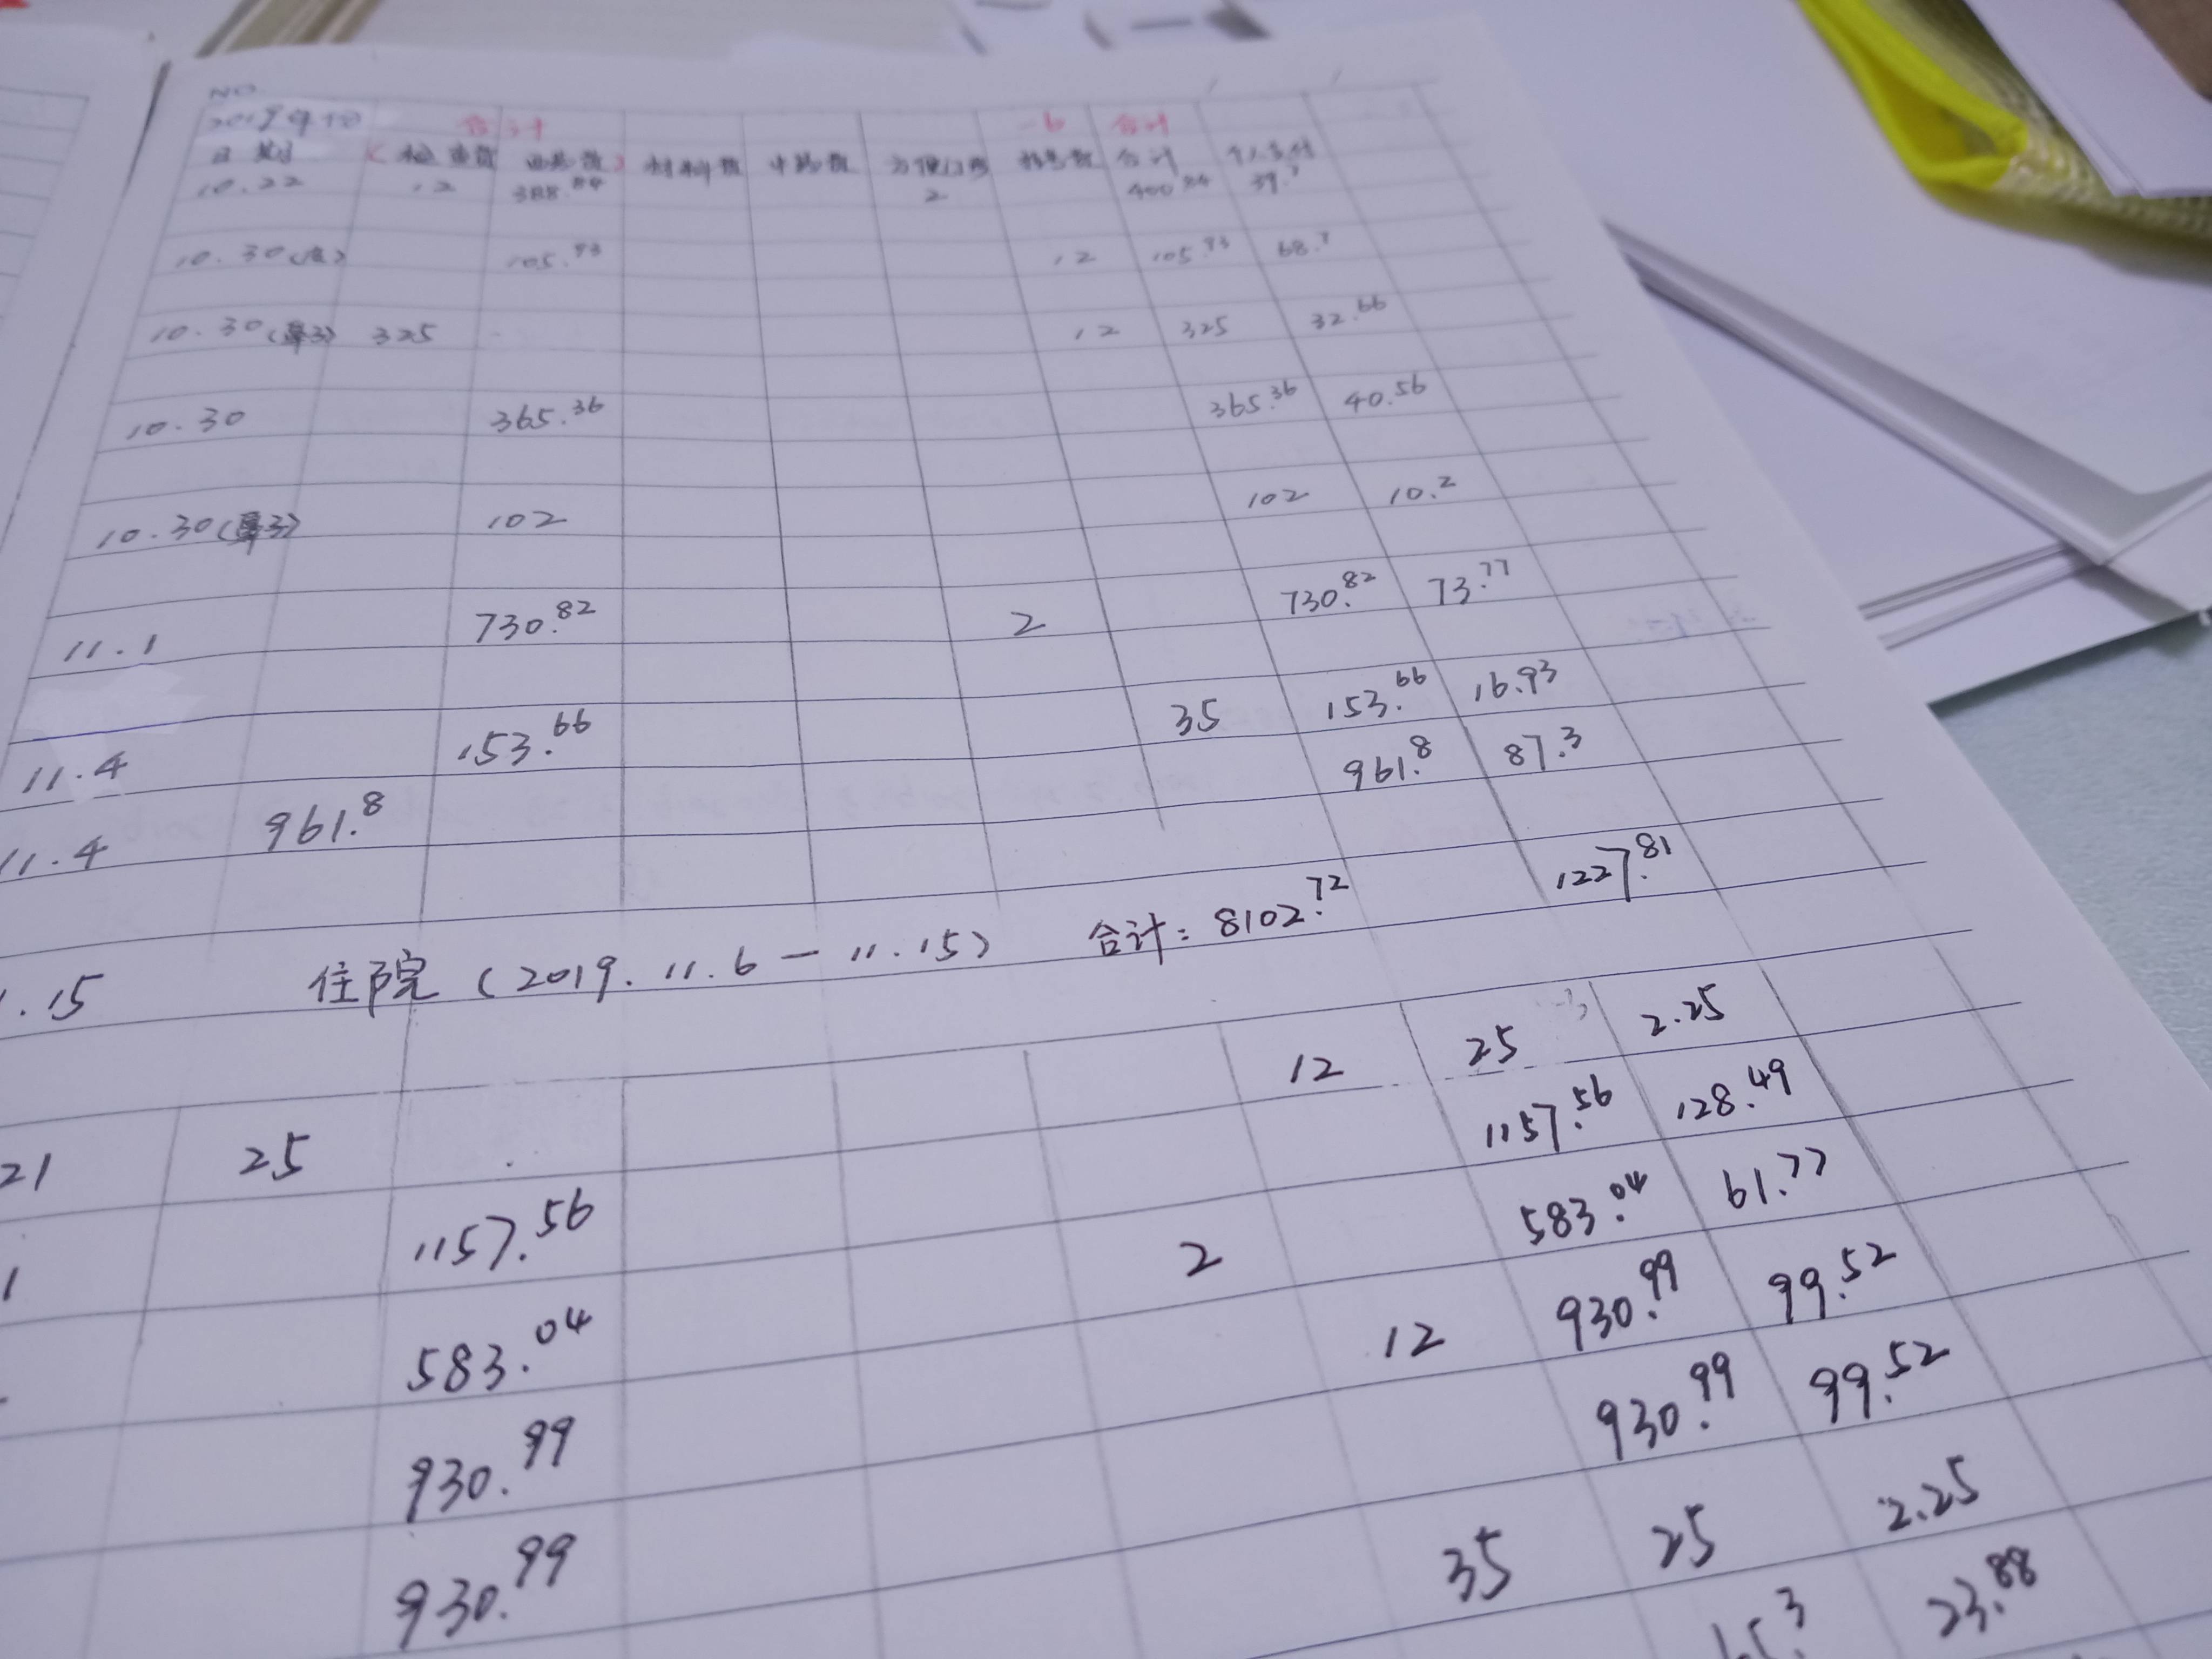 NO
2019年10
合计 合计
日期 检查费 西药费 材料费 中药费 方便门诊 挂号费 合计 个人支付
10.22 12 388.84 2 400.84 39.7
10.30 105.93 12 105.93 68.7
10.30(鼻子) 325 12 325 32.66
10.30 365.36 365.36 40.56
10.30(鼻子) 102 102 10.2
11.1 730.82 2 730.82 73.77
11.4 153.66 35 153.66 16.93
11.4 961.8 961.8 87.3
.15 住院(2019.11.6-11.15) 合计:8102.72 1227.81
21 25 12 25 2.25
1 1157.56 1157.56 128.49
583.04 2 583.04 61.77
930.99 12 930.99 99.52
930.99 930.99 99.52
35 25 2.25
23.88